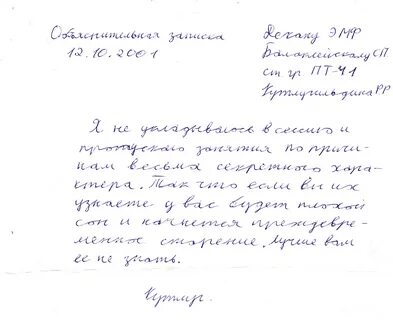 Объяснительная записка
12.10.2001
Декану ЭМФ
Балаплейскому СП
ст гр. ПТ-41
Кутлугильдина РР
Я не укладываюсь в сессию и
пропускаю занятия по причи-
нам весьма секретного хара-
ктера. Так что если Вы их
узнаете у вас будет плохой
сон и начнется преждевре-
менное старение. Лучше вам
ее не знать.